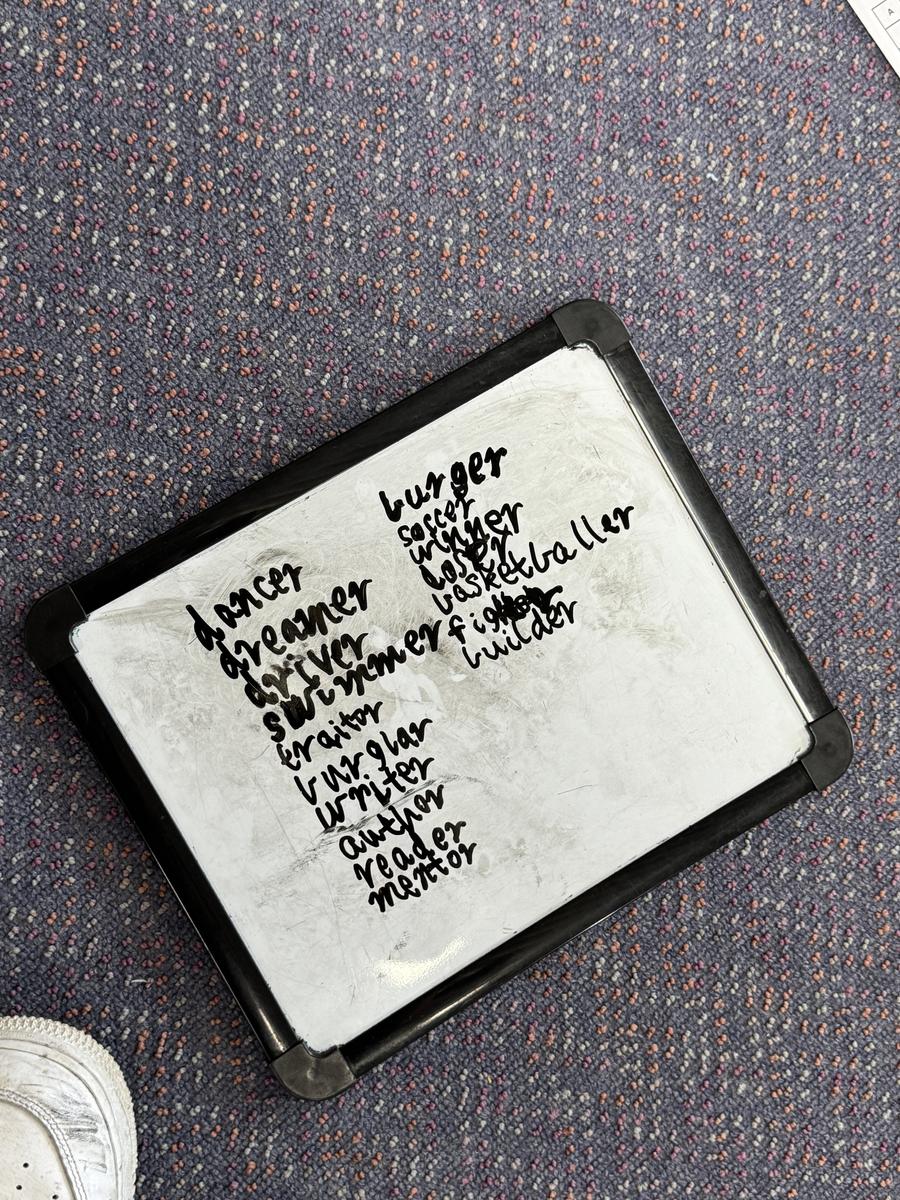 dancer
dreamer
driver
swimmer
traitor
burglar
writer
author
reader
mentor
burger
soccer
winner
basketballer
builder
A